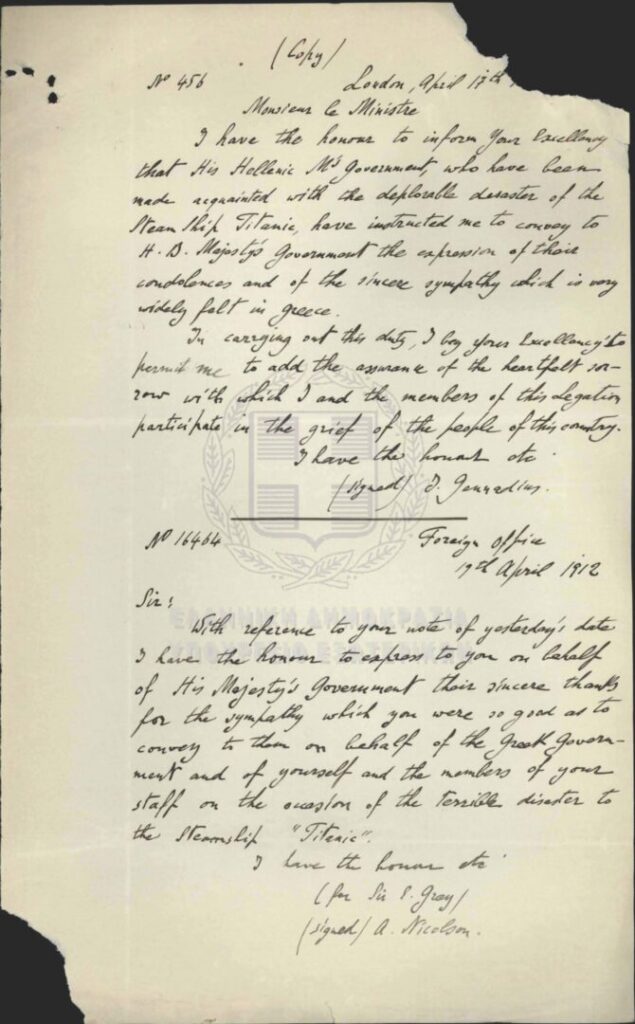 (Copy)
Nº 456 London, April 17th
Monsieur le Ministre
I have the honour to inform Your Excellency
that His Hellenic M's Government, who have been
made acquainted with the deplorable desaster of the
Steam Ship Titanic, have instructed me to convey to
H. B. Majesty's Government the expression of their
condolences and of the sincere sympathy which is very
widely felt in Greece.
In carrying out this duty, I beg your Excellency to
permit me to add the assurance of the heartfelt sor-
row with which I and the members of this Legation
participate in the grief of the people of this country.
I have the honour etc
(signed) J. Gennadius.
Nº 16464 Foreign Office
19th April 1912
Sir:
With reference to your note of yesterday's date
I have the honour to express to you on behalf
of His Majesty's Government their sincere thanks
for the sympathy which you were so good as to
convey to them on behalf of the Greek Govern-
ment and of yourself and the members of your
staff on the occasion of the terrible disaster to
the Steamship "Titanic".
I have the honour etc
(for Sir E. Grey)
(signed) A. Nicolson.
ΕΛΛΗΝΙΚΗ ΔΗΜΟΚΡΑΤΙΑ